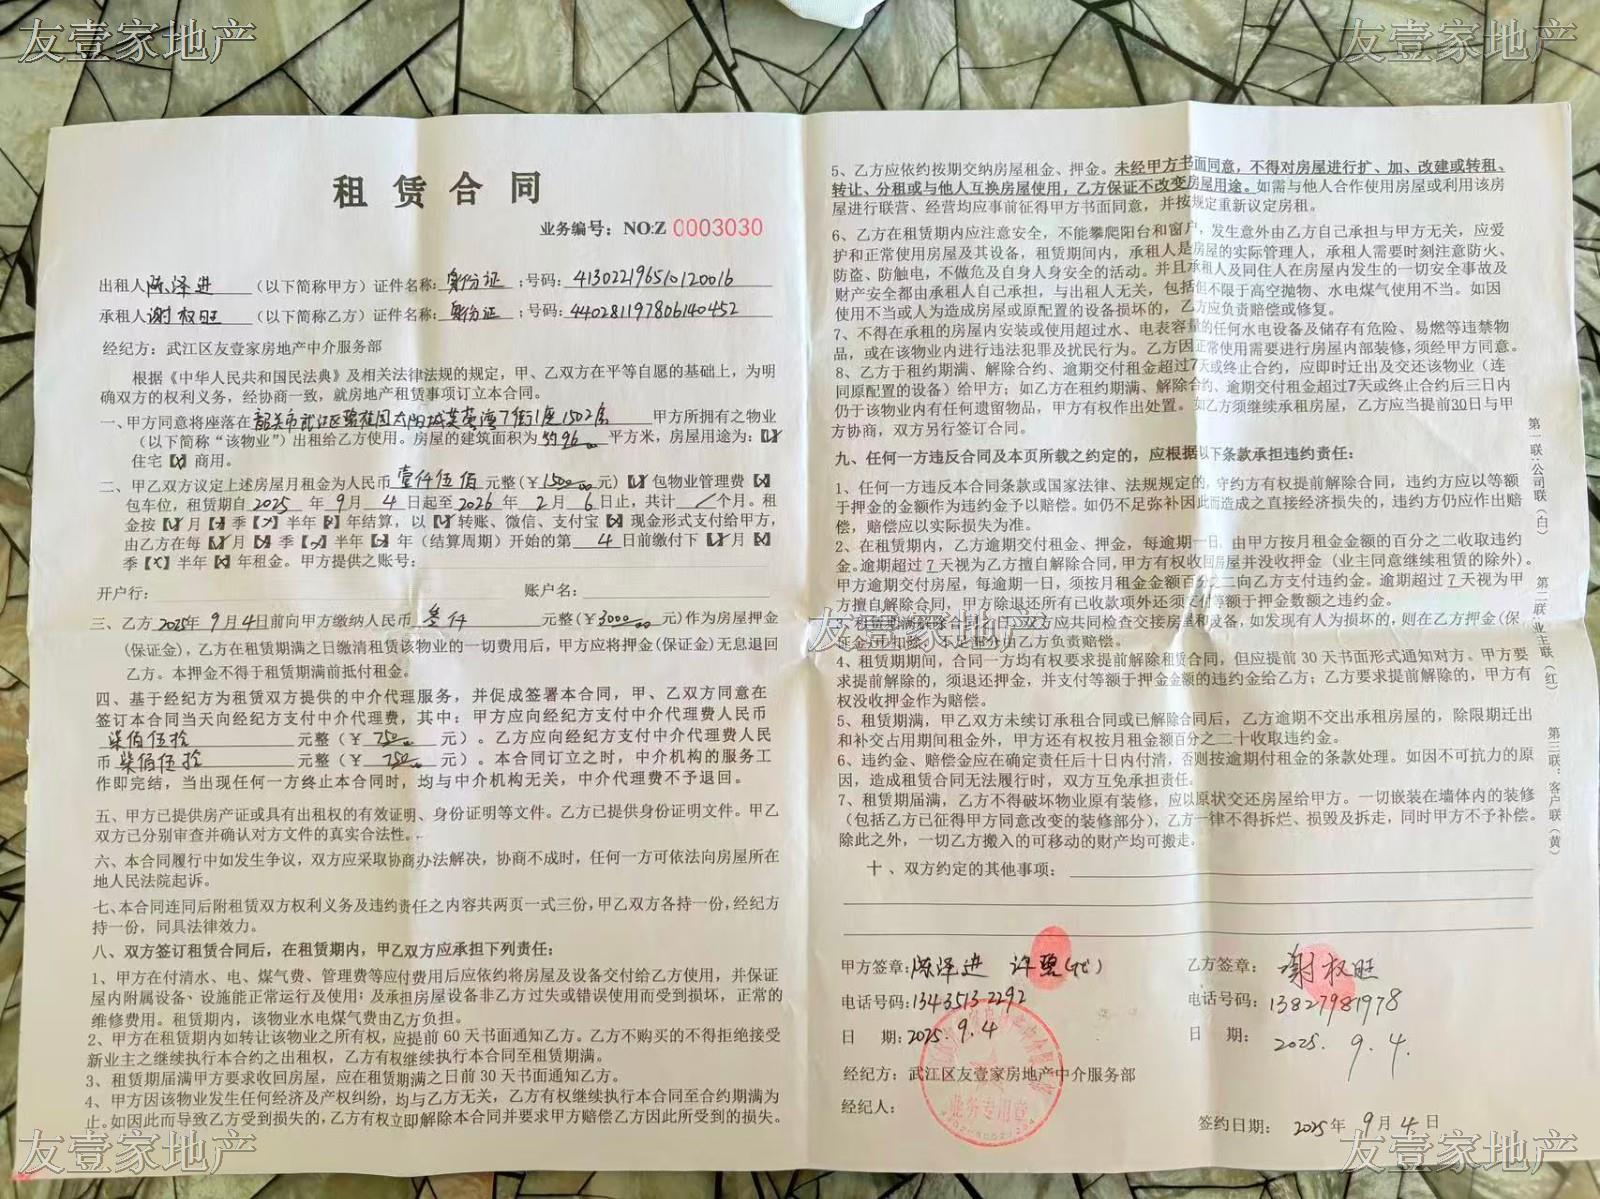 友壹家地产
友壹家地产
租赁合同
业务编号：NO:Z 0003030
出租人陈泽进（以下简称甲方）证件名称：身份证；号码：413022196510120016
承租人谢权旺（以下简称乙方）证件名称：身份证；号码：440281197806140452
经纪方：武江区友壹家房地产中介服务部
根据《中华人民共和国民法典》及相关法律法规的规定，甲、乙双方在平等自愿的基础上，为明
确双方的权利义务，经协商一致，就房地产租赁事项订立本合同。
一、甲方同意将座落在韶关市武江区碧桂园太阳城芙蓉湾7街1座1502房甲方所拥有之物业
（以下简称“该物业”）出租给乙方使用。房屋的建筑面积为55.96平方米，房屋用途为：【✓】
住宅【×】商用。
二、甲乙双方议定上述房屋月租金为人民币壹仟伍佰元整(￥1500.00元)【✓】包物业管理费【×】
包车位，租赁期自2025年9月4日起至2026年2月6日止，共计/个月。租
金按【✓】月【×】季【×】半年【×】年结算，以【✓】转账、微信、支付宝【×】现金形式支付给甲方，
由乙方在每【✓】月【×】季【×】半年【×】年（结算周期）开始的第4日前缴付下【✓】月【×】
季【×】半年【×】年租金。甲方提供之账号：
开户行：账户名：
三、乙方2025年9月4日前向甲方缴纳人民币叁仟元整(￥3000.00元)作为房屋押金
(保证金)，乙方在租赁期满之日缴清租赁该物业的一切费用后，甲方应将押金(保证金)无息退回
乙方。本押金不得于租赁期满前抵付租金。
四、基于经纪方为租赁双方提供的中介代理服务，并促成签署本合同，甲、乙双方同意在
签订本合同当天向经纪方支付中介代理费，其中：甲方应向经纪方支付中介代理费人民币
柒佰伍拾元整（￥750.00元）。乙方应向经纪方支付中介代理费人民
币柒佰伍拾元整（￥750.00元）。本合同订立之时，中介机构的服务工
作即完结，当出现任何一方终止本合同时，均与中介机构无关，中介代理费不予退回。
五、甲方已提供房产证或具有出租权的有效证明、身份证明等文件。乙方已提供身份证明文件。甲乙
双方已分别审查并确认对方文件的真实合法性。
六、本合同履行中如发生争议，双方应采取协商办法解决，协商不成时，任何一方可依法向房屋所在
地人民法院起诉。
七、本合同连同后附租赁双方权利义务及违约责任之内容共两页一式三份，甲乙双方各持一份，经纪方
持一份，同具法律效力。
八、双方签订租赁合同后，在租赁期内，甲乙双方应承担下列责任：
1、甲方在付清水、电、煤气费、管理费等应付费用后应依约将房屋及设备交付给乙方使用，并保证
屋内附属设备、设施能正常运行及使用；及承担房屋设备非乙方过失或错误使用而受到损坏，正常的
维修费用。租赁期内，该物业水电煤气费由乙方负担。
2、甲方在租赁期内如转让该物业之所有权，应提前60天书面通知乙方。乙方不购买的不得拒绝接受
新业主之继续执行本合约之出租权，乙方有权继续执行本合同至租赁期满。
3、租赁期届满甲方要求收回房屋，应在租赁期满之日前30天书面通知乙方。
4、甲方因该物业发生任何经济及产权纠纷，均与乙方无关，乙方有权继续执行本合同至合约期满为
止。如因此而导致乙方受到损失的，乙方有权立即解除本合同并要求甲方赔偿乙方因此所受到的损失。
5、乙方应依约按期交纳房屋租金、押金。未经甲方书面同意，不得对房屋进行扩、加、改建或转租、
转让、分租或与他人互换房屋使用，乙方保证不改变房屋用途。如需与他人合作使用房屋或利用该房
屋进行联营、经营均应事前征得甲方书面同意，并按规定重新议定房租。
6、乙方在租赁期内应注意安全，不能攀爬阳台和窗户，发生意外由乙方自己承担与甲方无关，应爱
护和正常使用房屋及其设备，租赁期间内，承租人是房屋的实际管理人，承租人需要时刻注意防火、
防盗、防触电，不做危及自身人身安全的活动。并且承租人及同住人在房屋内发生的一切安全事故及
财产安全都由承租人自己承担，与出租人无关，包括但不限于高空抛物、水电煤气使用不当。如因
使用不当或人为造成房屋或原配置的设备损坏的，乙方应负责赔偿或修复。
7、不得在承租的房屋内安装或使用超过水、电表容量的任何水电设备及储存有危险、易燃等违禁物
品，或在该物业内进行违法犯罪及扰民行为。乙方因正常使用需要进行房屋内部装修，须经甲方同意。
8、乙方于租约期满、解除合约、逾期交付租金超过7天或终止合约，应即时迁出及交还该物业（连
同原配置的设备）给甲方；如乙方在租约期满、解除合约、逾期交付租金超过7天或终止合约后三日内
仍于该物业内有任何遗留物品，甲方有权作出处置。如乙方须继续承租房屋，乙方应当提前30日与甲
方协商，双方另行签订合同。
九、任何一方违反合同及本页所载之约定的，应根据以下条款承担违约责任：
1、任何一方违反本合同条款或国家法律、法规规定的，守约方有权提前解除合同，违约方应以等额
于押金的金额作为违约金予以赔偿。如仍不足弥补因此而造成之直接经济损失的，违约方仍应作出赔
偿，赔偿应以实际损失为准。
2、在租赁期内，乙方逾期交付租金、押金，每逾期一日，由甲方按月租金金额的百分之二收取违约
金。逾期超过7天视为乙方擅自解除合同，甲方有权收回房屋并没收押金（业主同意继续租赁的除外）。
甲方逾期交付房屋，每逾期一日，须按月租金金额百分之二向乙方支付违约金。逾期超过7天视为甲
方擅自解除合同，甲方除退还所有已收款项外还须支付等额于押金数额之违约金。
友壹家地产
3、租赁期满解除合同之日，双方应共同检查交接房屋和设备，如发现有人为损坏的，则在乙方押金(保
证金)中扣除，不足部分由乙方负责赔偿。
4、租赁期期间，合同一方均有权要求提前解除租赁合同，但应提前30天书面形式通知对方。甲方要
求提前解除的，须退还押金，并支付等额于押金金额的违约金给乙方；乙方要求提前解除的，甲方有
权没收押金作为赔偿。
5、租赁期满，甲乙双方未续订承租合同或已解除合同后，乙方逾期不交出承租房屋的，除限期迁出
和补交占用期间租金外，甲方还有权按月租金额百分之二十收取违约金。
6、违约金、赔偿金应在确定责任后十日内付清，否则按逾期付租金的条款处理。如因不可抗力的原
因，造成租赁合同无法履行时，双方互免承担责任。
7、租赁期届满，乙方不得破坏物业原有装修，应以原状交还房屋给甲方。一切嵌装在墙体内的装修
（包括乙方已征得甲方同意改变的装修部分），乙方一律不得拆烂、损毁及拆走，同时甲方不予补偿。
除此之外，一切乙方搬入的可移动的财产均可搬走。
十、双方约定的其他事项：
甲方签章：陈泽进 (代)
电话号码：13435132292
日期：2025.9.4
经纪方：武江区友壹家房地产中介服务部
经纪人：
业务专用章
乙方签章：谢权旺
电话号码：13827981978
日期：2025.9.4.
签约日期：2025年9月4日
第一联：公司联（白）
第二联：业主联（红）
第三联：客户联（黄）
友壹家地产
友壹家地产